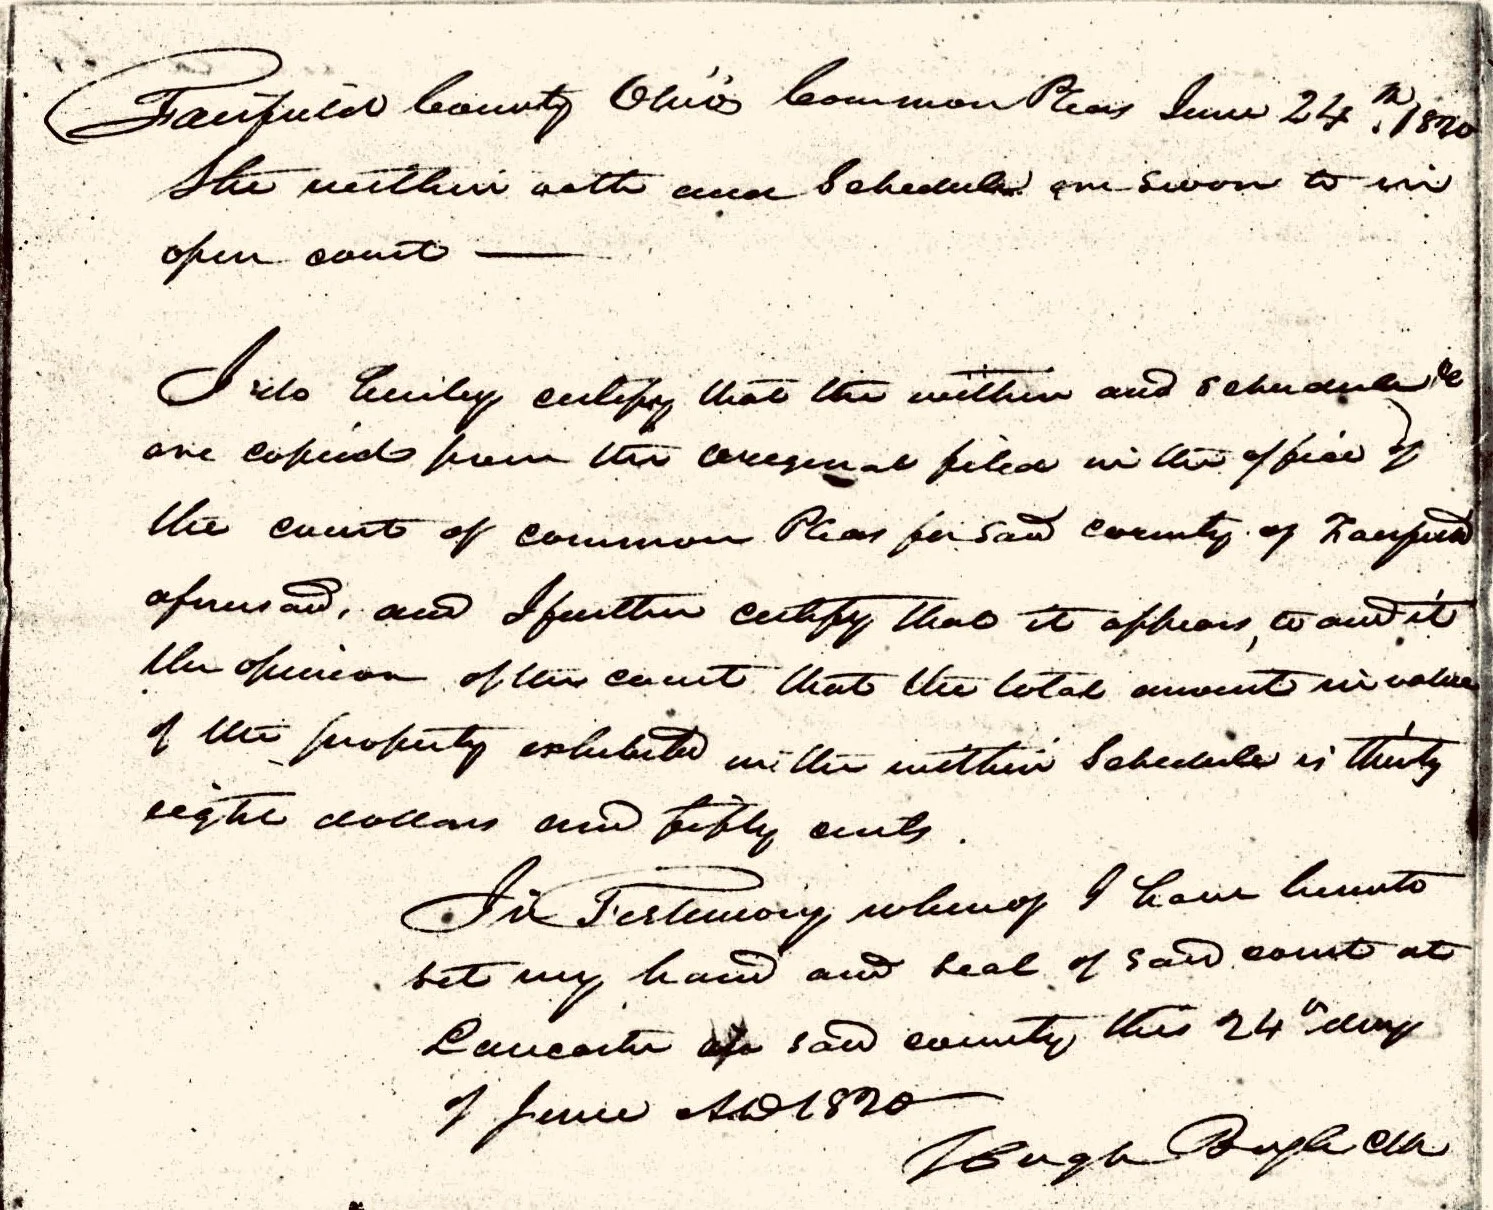 Fairfield County Ohio Common Pleas June 24th. 1820
The within oath and Schedule are sworn to in
open court —
I do hereby certify that the within and schedule &c
are copied from the original filed in the office of
the court of common Pleas for said county of Fairfield
aforesaid, and I further certify that it appears, to and it
the opinion of the court that the total amount in value
of the property exhibited in the within Schedule is thirty
eight dollars and fifty cents.
In Testimony whereof I have hereunto
set my hand and seal of said court at
Lancaster said county this 24th day
of June AD 1820
Hugh Boyle Clk